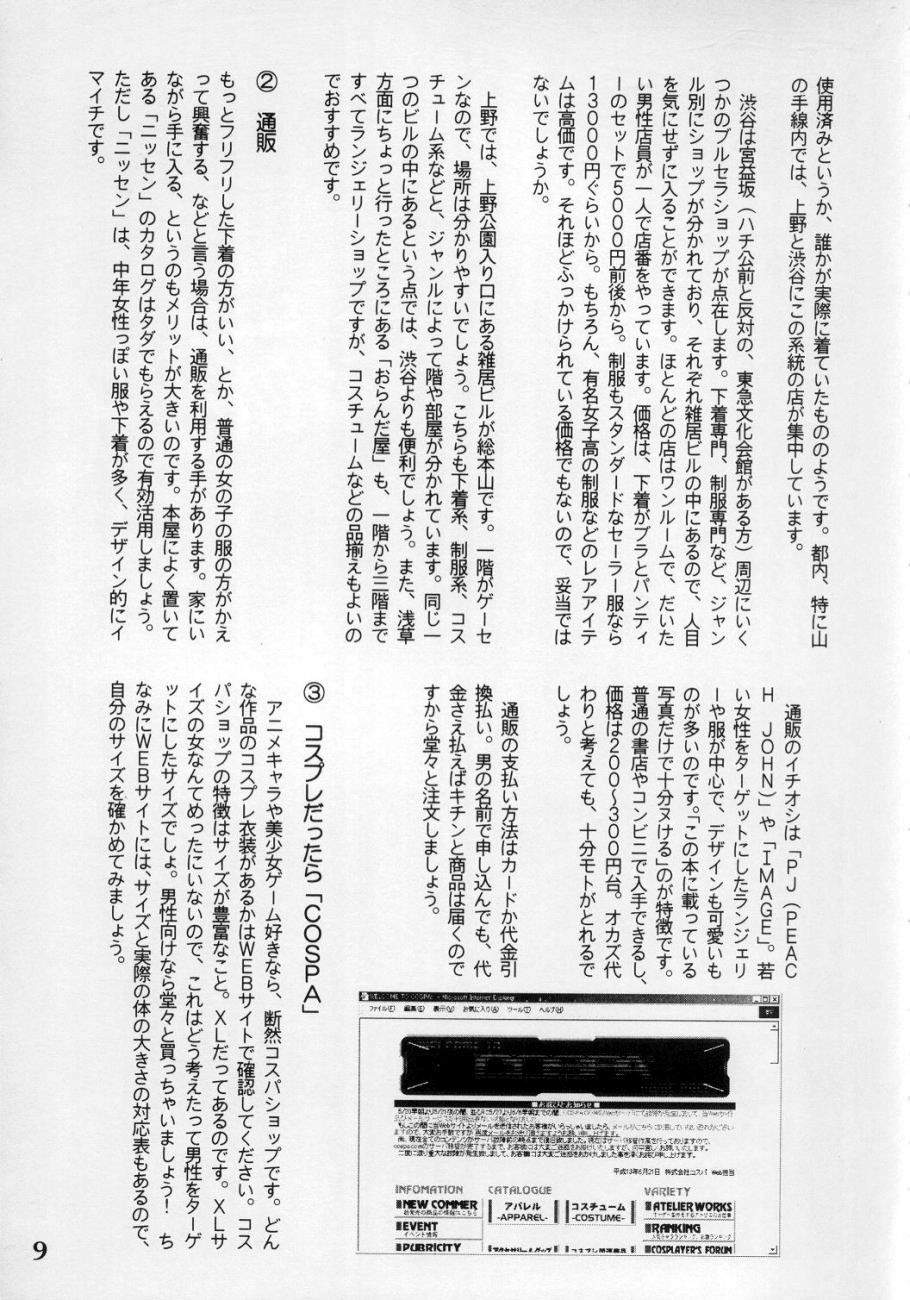 使用済みというか、誰かが実際に着ていたもののようです。都内、特に山
の手線内では、上野と渋谷にこの系統の店が集中しています。
渋谷は宮益坂（ハチ公前と反対の、東急文化会館がある方）周辺にいく
つかのブルセラショップが点在します。下着専門、制服専門など、ジャン
ル別にショップが分かれており、それぞれ雑居ビルの中にあるので、人目
を気にせずに入ることができます。ほとんどの店はワンルームで、だいた
い男性店員が一人で店番をやっています。価格は、下着がブラとパンティ
ーのセットで5000円前後から。制服もスタンダードなセーラー服なら
13000円ぐらいから。もちろん、有名女子高の制服などのレアアイテ
ムは高価です。それほどふっかけられている価格でもないので、妥当では
ないでしょうか。
上野では、上野公園入り口にある雑居ビルが総本山です。一階がゲーセ
ンなので、場所は分かりやすいでしょう。こちらも下着系、制服系、コス
チューム系などと、ジャンルによって階や部屋が分かれています。同じ一
つのビルの中にあるという点では、渋谷よりも便利でしょう。また、浅草
方面にちょっと行ったところにある「おらんだ屋」も、一階から三階まで
すべてランジェリーショップですが、コスチュームなどの品揃えもよいの
でおすすめです。
② 通販
もっとフリフリした下着の方がいい、とか、普通の女の子の服の方がかえ
って興奮する、などと言う場合は、通販を利用する手があります。家にい
ながら手に入る、というのもメリットが大きいのです。本屋によく置いて
ある「ニッセン」のカタログはタダでもらえるので有効活用しましょう。
ただし「ニッセン」は、中年女性っぽい服や下着が多く、デザイン的にイ
マイチです。
通販のイチオシは「PJ（PEAC
H JOHN）」や「IMAGE」。若
い女性をターゲットにしたランジェリ
ーや服が中心で、デザインも可愛いも
のが多いのです。「この本に載っている
写真だけで十分ヌける」のが特徴です。
普通の書店やコンビニで入手できるし、
価格は200〜300円台。オカズ代
わりと考えても、十分モトがとれるで
しょう。
通販の支払い方法はカードか代金引
換払い。男の名前で申し込んでも、代
金さえ払えばキチンと商品は届くので
すから堂々と注文しましょう。
③ コスプレだったら「COSPA」
アニメキャラや美少女ゲーム好きなら、断然コスパショップです。どん
な作品のコスプレ衣装があるかはWEBサイトで確認してください。コス
パショップの特徴はサイズが豊富なこと。XLだってあるのです。XLサ
イズの女なんてめったにいないので、これはどう考えたって男性をターゲ
ットにしたサイズでしょ。男性向けなら堂々と買っちゃいましょう！ ち
なみにWEBサイトには、サイズと実際の体の大きさの対応表もあるので、
自分のサイズを確かめてみましょう。
WELCOME TO COSPA - Microsoft Internet Explorer
ファイル(F) 編集(E) 表示(V) お気に入り(A) ツール(T) ヘルプ(H)
■お詫びとお知らせ■
平成13年6月21日 株式会社コスパ Web担当
INFOMATION CATALOGUE VARIETY
NEW COMMER アパレル コスチューム ATELIER WORKS
-APPAREL- -COSTUME-
EVENT RANKING
イベント情報
PUBRICITY COSPLAYER'S FORUM
9